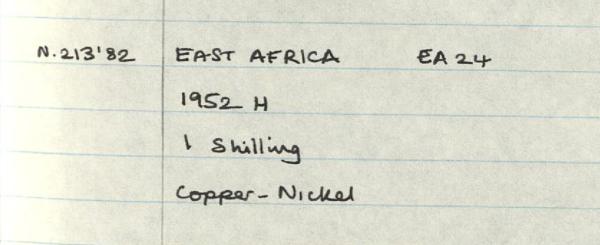 N.213'82 EAST AFRICA EA 24
1952 H
1 Shilling
Copper-Nickel